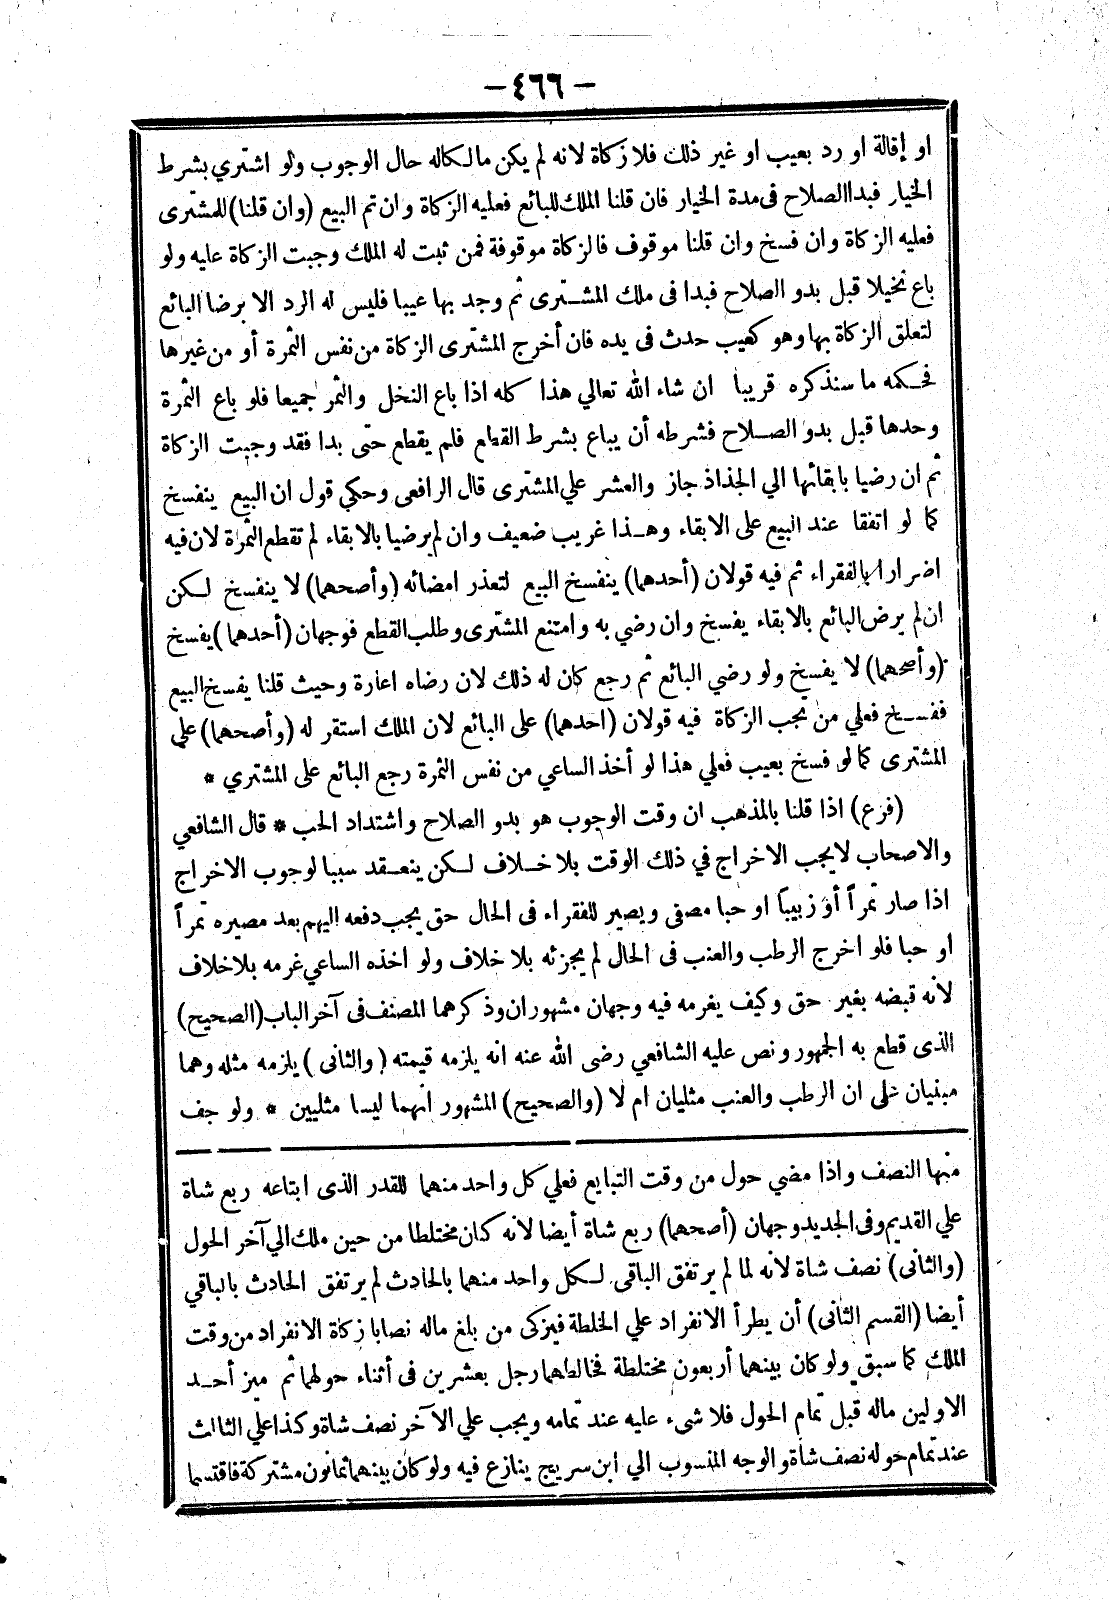 - ٤٦٦ -
او إقالة او رد بعيب او غير ذلك فلا زكاة لانه لم يكن مالكا له حال الوجوب ولو اشتري بشرط
الخيار فبدا الصلاح فى مدة الخيار فان قلنا الملك للبائع فعليه الزكاة وان تم البيع (وان قلنا) للمشترى
فعليه الزكاة وان فسخ وان قلنا موقوف فالزكاة موقوفة فمن ثبت له الملك وجبت الزكاة عليه ولو
باع نخيلا قبل بدو الصلاح فبدا فى ملك المشترى ثم وجد بها عيبا فليس له الرد الا برضا البائع
لتعلق الزكاة بها وهو كعيب حدث فى يده فان أخرج المشترى الزكاة من نفس الثمرة أو من غيرها
فحكمه ما سنذكره قريبا ان شاء الله تعالي هذا كله اذا باع النخل والثمر جميعا فلو باع الثمرة
وحدها قبل بدو الصلاح فشرطه أن يباع بشرط القطع فلم يقطع حتى بدا فقد وجبت الزكاة
ثم ان رضيا بابقائها الي الجذاذ جاز والعشر علي المشترى قال الرافعى وحكي قول ان البيع ينفسخ
كما لو اتفقا عند البيع على الابقاء وهذا غريب ضعيف وان لم يرضيا بالابقاء لم تقطع الثمرة لان فيه
اضرارا بالفقراء ثم فيه قولان (أحدهما) ينفسخ البيع لتعذر امضائه (وأصحهما) لا ينفسخ لكن
ان لم يرض البائع بالابقاء يفسخ وان رضي به وامتنع المشترى وطلب القطع فوجهان (أحدهما) يفسخ
(وأصحهما) لا يفسخ ولو رضي البائع ثم رجع كان له ذلك لان رضاه اعارة وحيث قلنا يفسخ البيع
ففسخ فعلي من تجب الزكاة فيه قولان (احدهما) على البائع لان الملك استقر له (وأصحهما) علي
المشترى كما لو فسخ بعيب فعلي هذا لو أخذ الساعي من نفس الثمرة رجع البائع على المشتري *
(فرع) اذا قلنا بالمذهب ان وقت الوجوب هو بدو الصلاح واشتداد الحب * قال الشافعي
والاصحاب لا يجب الاخراج في ذلك الوقت بلا خلاف لكن ينعقد سببا لوجوب الاخراج
اذا صار تمراً أو زبيباً او حبا مصفى ويصير للفقراء فى الحال حق يجب دفعه اليهم بعد مصيره تمراً
او حبا فلو اخرج الرطب والعنب فى الحال لم يجزئه بلا خلاف ولو اخذه الساعي غرمه بلا خلاف
لانه قبضه بغير حق وكيف يغرمه فيه وجهان مشهوران وذكرهما المصنف فى آخر الباب (الصحيح)
الذى قطع به الجمهور ونص عليه الشافعي رضى الله عنه انه يلزمه قيمته (والثانى) يلزمه مثله وهما
مبنيان على ان الرطب والعنب مثليان ام لا (والصحيح) المشهور انهما ليسا مثليين * ولو جف
منها النصف واذا مضي حول من وقت التبايع فعلي كل واحد منهما للقدر الذى ابتاعه ربع شاة
علي القديم وفى الجديد وجهان (أصحهما) ربع شاة أيضا لانه كان مختلطا من حين ملك الي آخر الحول
(والثانى) نصف شاة لانه لما لم يرتفق الباقى لكل واحد منهما بالحادث لم يرتفق الحادث بالباقي
أيضا (القسم الثانى) أن يطرأ الانفراد علي الخلطة فيزكى من بلغ ماله نصابا زكاة الانفراد من وقت
الملك كما سبق ولو كان بينهما أربعون مختلطة فخالطهما رجل بعشرين فى أثناء حولهما ثم ميز أحد
الاولين ماله قبل تمام الحول فلا شىء عليه عند تمامه ويجب علي الآخر نصف شاة وكذا علي الثالث
عند تمام حوله نصف شاة والوجه المنسوب الي ابن سريج ينازع فيه ولو كان بينهما ثمانون مشتركة فاقتسما